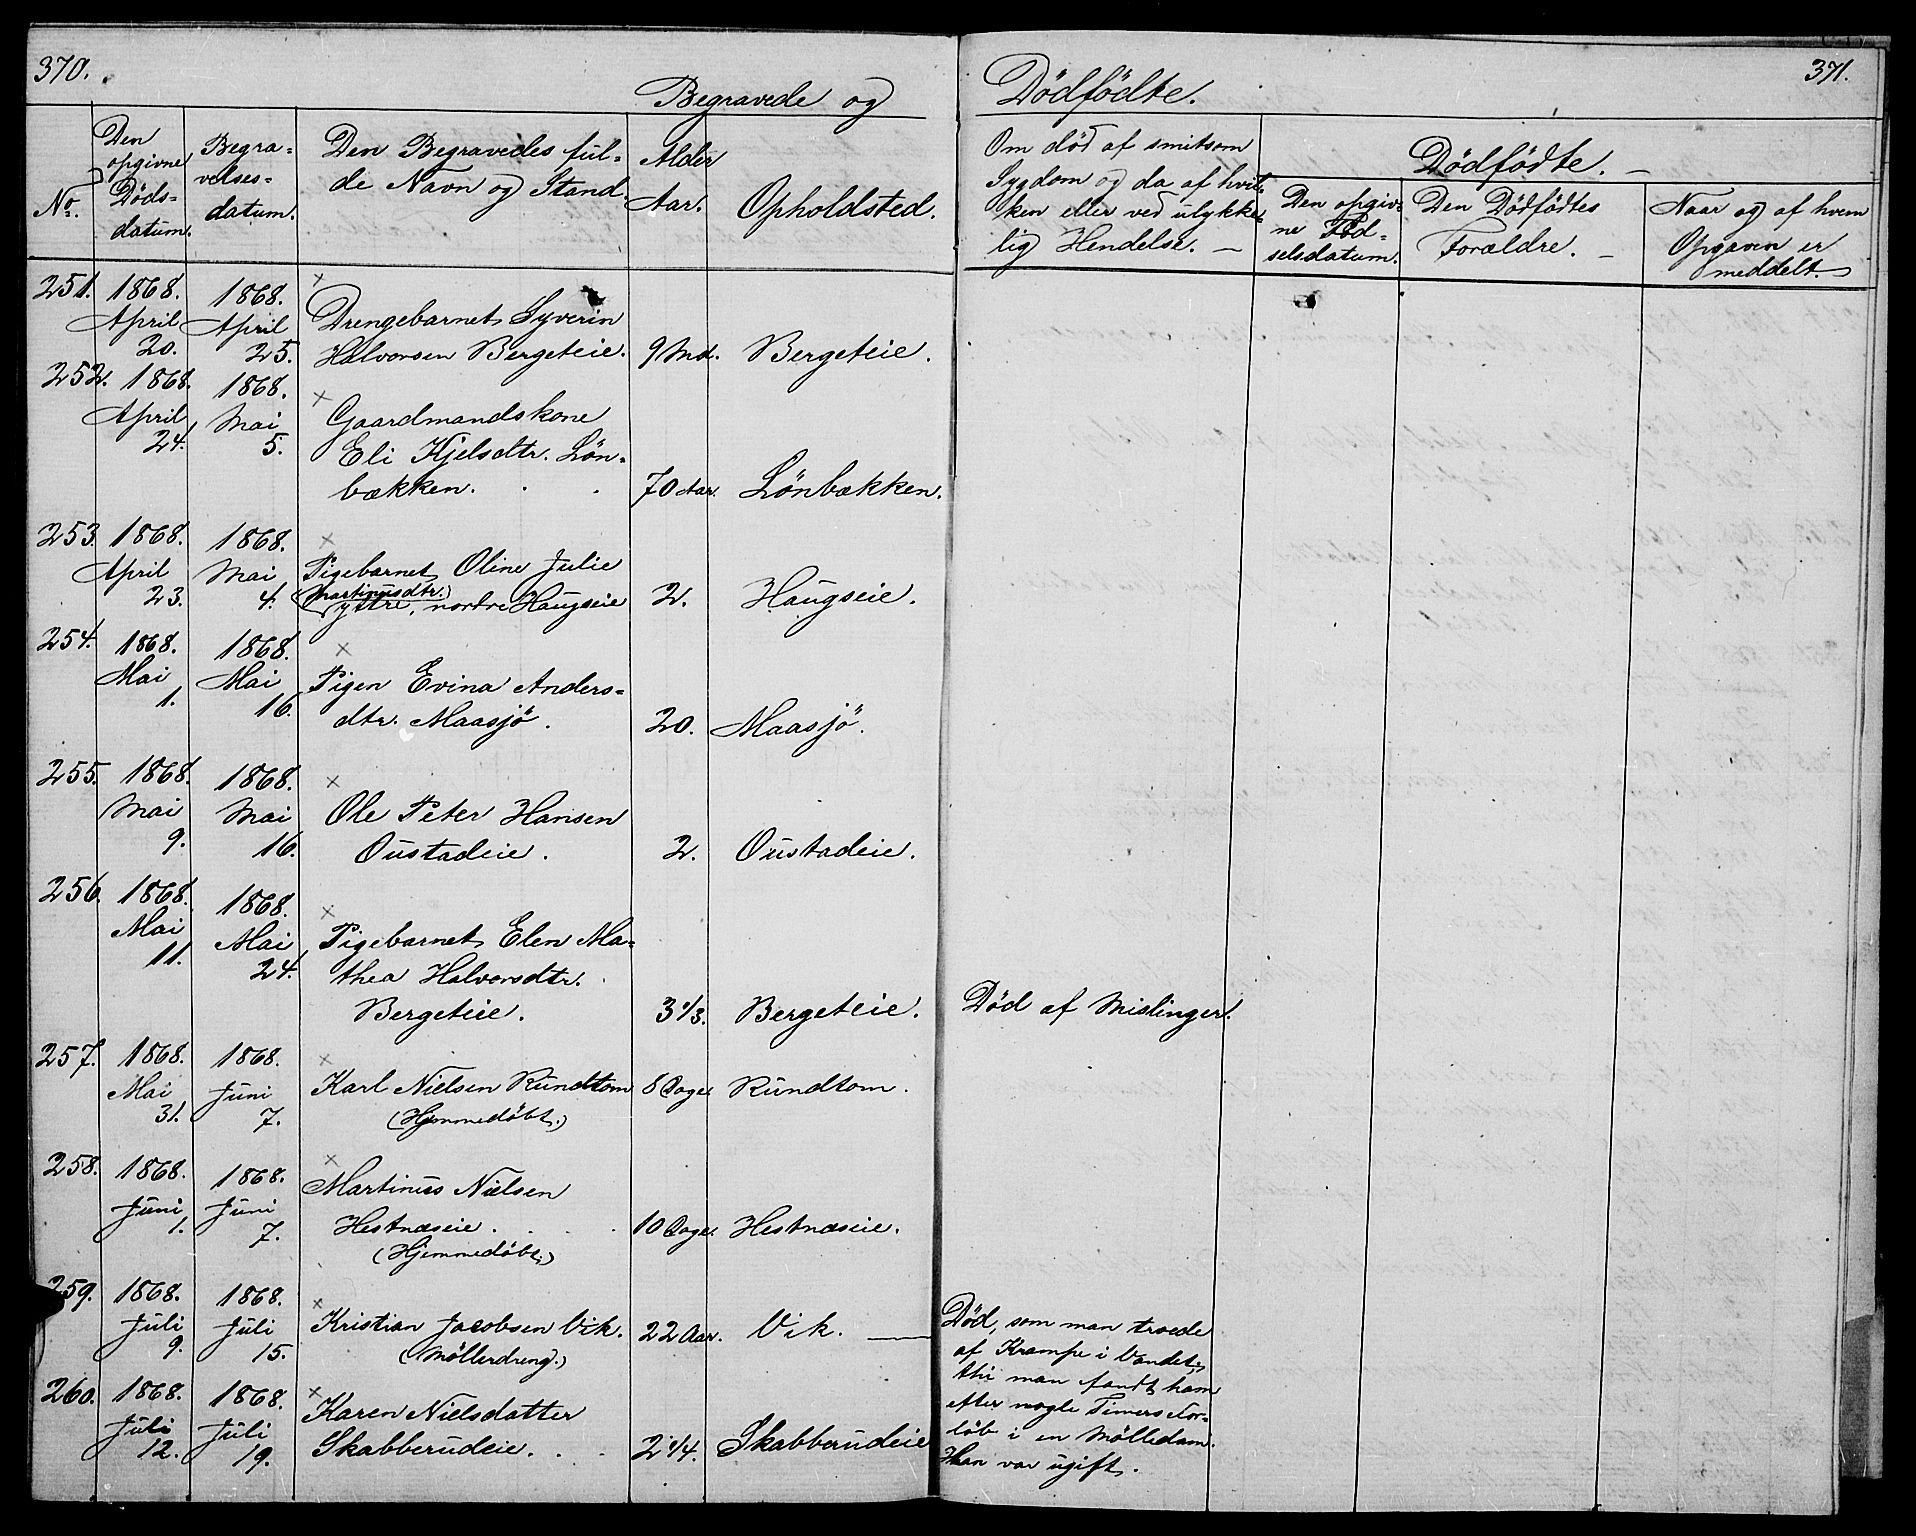 370.
Begravede og
Dödfödte.
371.
No.
Den opgivne Dödsdatum.
Begravelsesdatum.
Den Begravedes fulde Navn og Stand.
Alder Aar.
Opholdsted.
Om död af smitsom Sygdom og da af hvilken eller ved ulykkelig Hendelse. —
Dödfödte. —
Den opgivne Födselsdatum.
Den Dödfödtes Forældre. —
Naar og af hvem Opgaven er meddelt.
251. 1868. 1868. ×
April April Drengebarnet Syverin
20. 25. Halvorsen Bergeteie. 9 Md. Bergeteie.
252. 1868. 1868. ×
April Mai Gaardmandskone
24. 5. Eli Kjelsdtr. Lön-
bækken. . . 70 Aar. Lönbækken.
253. 1868. 1868. ×
April Mai Pigebarnet Oline Julie
(Martinusdtr.)
23. 4. ystre, nordre Haugseie 2. Haugseie.
254. 1868. 1868. ×
Mai Mai Pigen Evina Anders-
1. 16. dtr. Maasjö. 20. Maasjö.
255. 1868. 1868. ×
Mai Mai Ole Peter Hansen
9. 16. Oustadeie. 2. Oustadeie.
256. 1868. 1868. ×
Mai Mai Pigebarnet Elen Ma-
11. 24. thea Halvorsdtr.
Bergeteie. 3 1/3. Bergeteie. Död af Mislinger.
257. 1868. 1868. ×
Mai Juni Karl Nielsen Rundtom 8 Dage. Rundtom.
31. 7. (Hjemmedöbt.)
258. 1868. 1868. ×
Martinus Nielsen
Juni Juni Hestnæseie. . . . 10 Dage. Hestnæseie.
1. 7. (Hjemmedöbt.)
259. 1868. 1868. ×
Juli Juli Kristian Jacobsen Vik. 22 Aar. Vik. —
9. 15. (Möllerdreng.)
Död, som man troede
af Krampe i Vandet,
thi man fandt ham
efter nogle Timers For-
löb i en Mölledam.
Han var ugift.
260. 1868. 1868. ×
Juli Juli Karen Nielsdatter
12. 19. Skabberudeie. . . 2 1/4. Skabberudeie